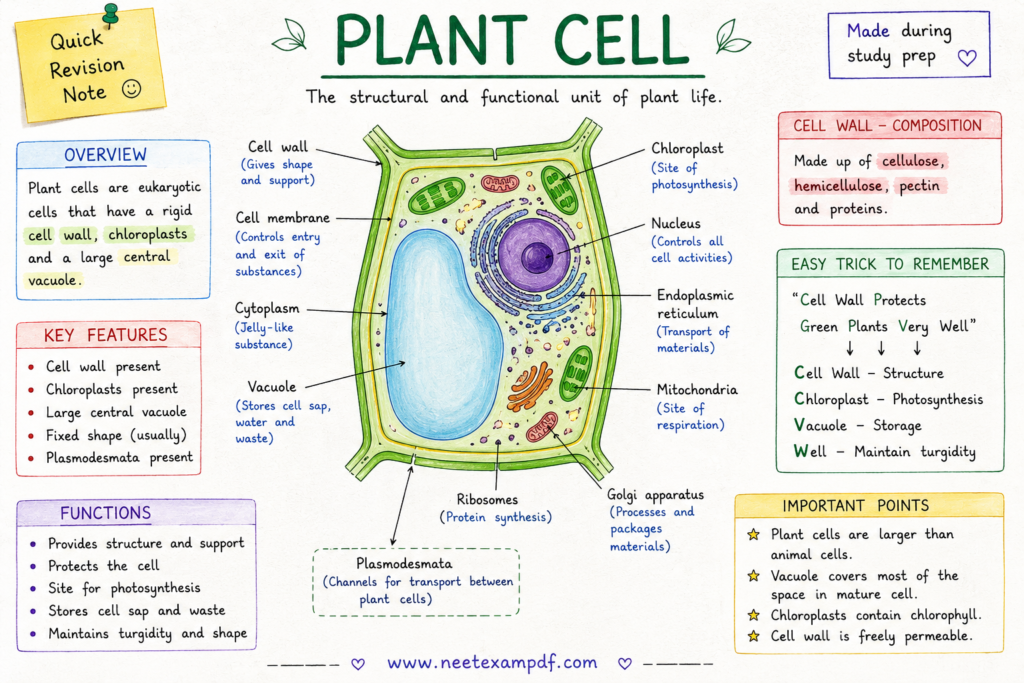 Quick
Revision
Note
PLANT CELL
The structural and functional unit of plant life.
Made during
study prep
OVERVIEW
Plant cells are eukaryotic
cells that have a rigid
cell wall, chloroplasts
and a large central
vacuole.
KEY FEATURES
• Cell wall present
• Chloroplasts present
• Large central vacuole
• Fixed shape (usually)
• Plasmodesmata present
FUNCTIONS
• Provides structure and support
• Protects the cell
• Site for photosynthesis
• Stores cell sap and waste
• Maintains turgidity and shape
Cell wall
(Gives shape
and support)
Cell membrane
(Controls entry
and exit of
substances)
Cytoplasm
(Jelly-like
substance)
Vacuole
(Stores cell sap,
water and
waste)
Chloroplast
(Site of
photosynthesis)
Nucleus
(Controls all
cell activities)
Endoplasmic
reticulum
(Transport of
materials)
Mitochondria
(Site of
respiration)
Golgi apparatus
(Processes and
packages
materials)
Ribosomes
(Protein synthesis)
Plasmodesmata
(Channels for transport between
plant cells)
CELL WALL – COMPOSITION
Made up of cellulose,
hemicellulose, pectin
and proteins.
EASY TRICK TO REMEMBER
"Cell Wall Protects
Green Plants Very Well"
Cell Wall – Structure
Chloroplast – Photosynthesis
Vacuole – Storage
Well – Maintain turgidity
IMPORTANT POINTS
Plant cells are larger than
animal cells.
Vacuole covers most of the
space in mature cell.
Chloroplasts contain chlorophyll.
Cell wall is freely permeable.
www.neetexampdf.com